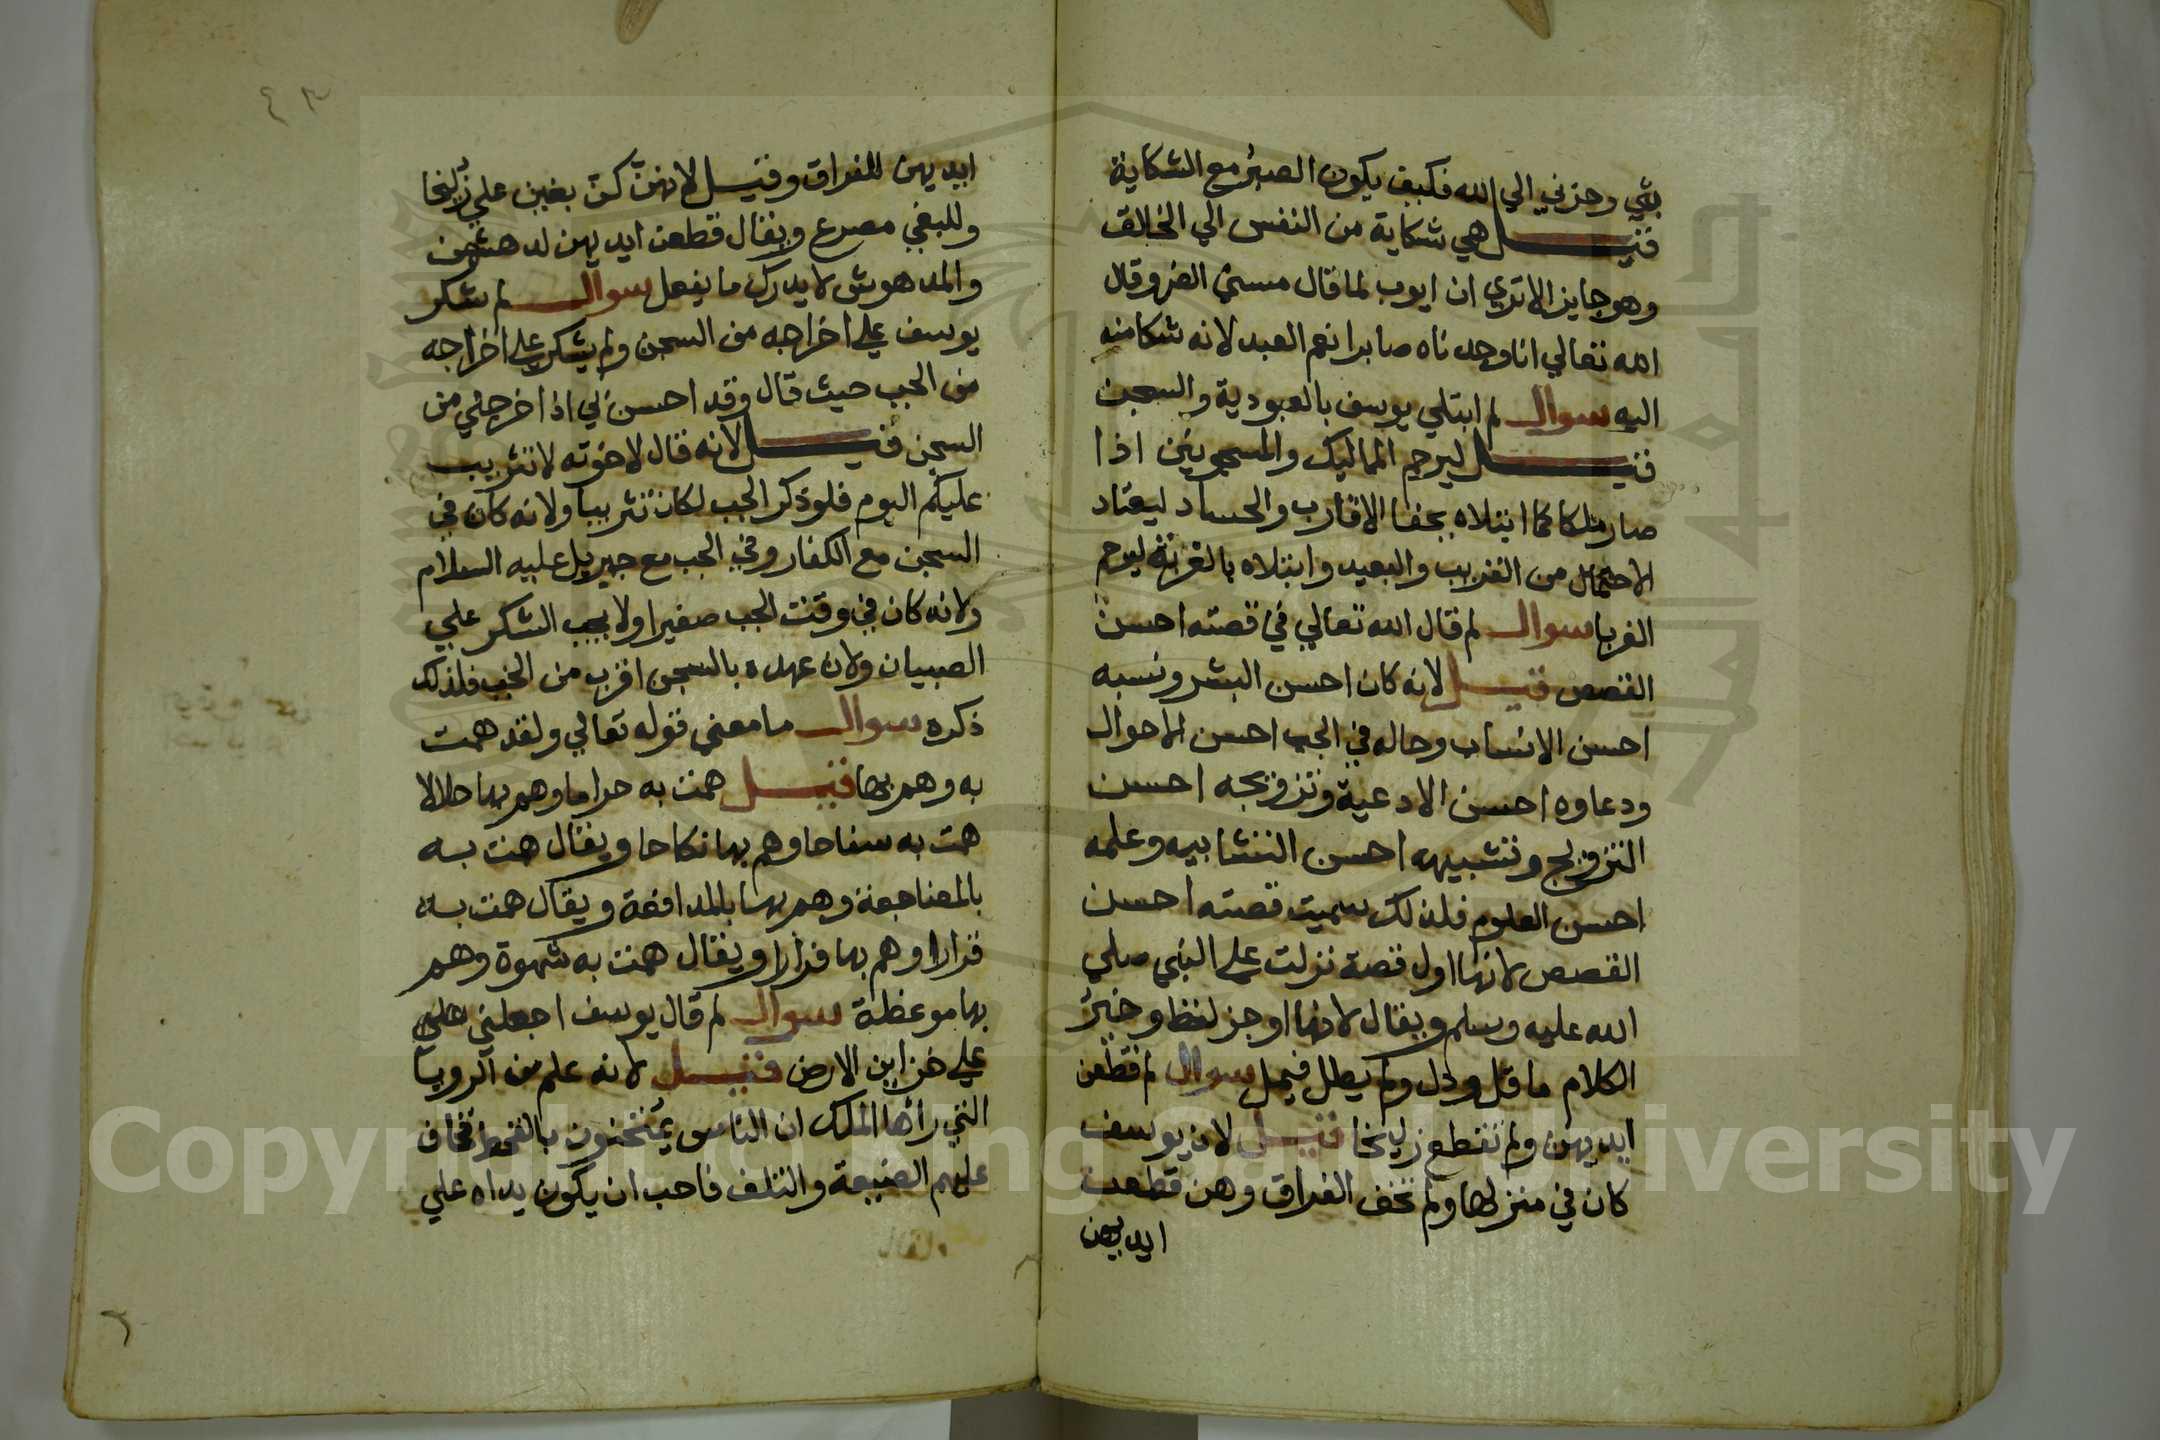 بثي وحزني الي الله فكيف يكون الصبر مع الشكاية
قيل هي شكاية من النفس الي الخالق
وهو جايز الاتري ان ايوب لما قال مسني الضر وقال
الله تعالي انا وجدناه صابرا نعم العبد لانه شكا منه
اليه سوال لم ابتلي يوسف بالعبودية والسجن
قيل ليرحم المماليك والمسجونين اذا
صار ملكا كما ابتلاه بجفا الاقارب والحساد ليعتاد
الاحتمال من القريب والبعيد وابتلاه بالغربة ليرحم
الغربا سوال لم قال الله تعالي في قصته احسن
القصص قيل لانه كان احسن البشر ونسبه
احسن الانساب وحاله في الجب احسن الاحوال
ودعاوه احسن الادعية وتزويجه احسن
التزويج وتشبيهه احسن التشابيه وعلمه
احسن العلوم فلذلك سميت قصته احسن
القصص لانها اول قصة نزلت علي النبي صلي
الله عليه وسلم ويقال لانها اوجز لفظ وخير
الكلام ما قل ودل ولم يطل فيمل سوال لم قطعن
ايديهن ولم تقطع زليخا قيل لان يوسف
كان في منزلها ولم تخف الفراق وهن قطعت
ايديهن
٤٣
ايديهن للفراق وقيل لانهن كن بغين علي زليخا
وللبغي مصرع ويقال قطعن ايديهن لدهشهن
والمدهوش لا يدرك ما يفعل سوال لم شكر
يوسف علي اخراجه من السجن ولم يشكر علي اخراجه
من الجب حيث قال وقد احسن لي اذا اخرجني من
السجن قيل لانه قال لاخوته لا تثريب
عليكم اليوم فلو ذكر الجب لكان تثريبا ولانه كان في
السجن مع الكفار وفي الجب مع جبريل عليه السلام
ولانه كان في وقت الجب صغيرا ولا يجب الشكر علي
الصبيان ولان عهده بالسجن اقرب من الجب فلذلك
ذكره سوال ما معني قوله تعالي ولقد همت
به وهم بها قيل همت به حراما وهم بها حلالا
همت به سفاحا وهم بها نكاحا ويقال همت به
بالمضاجعة وهم بها بالمدافعة ويقال همت به
قرارا وهم بها فرارا ويقال همت به شهوة وهم
بها موعظة سوال لم قال يوسف اجعلني علي
علي خزاين الارض قيل لانه علم من الرويا
التي راها الملك ان الناس يمتحنون بالقحط فخاف
عليهم الضيعة والتلف فاحب ان يكون يداه علي